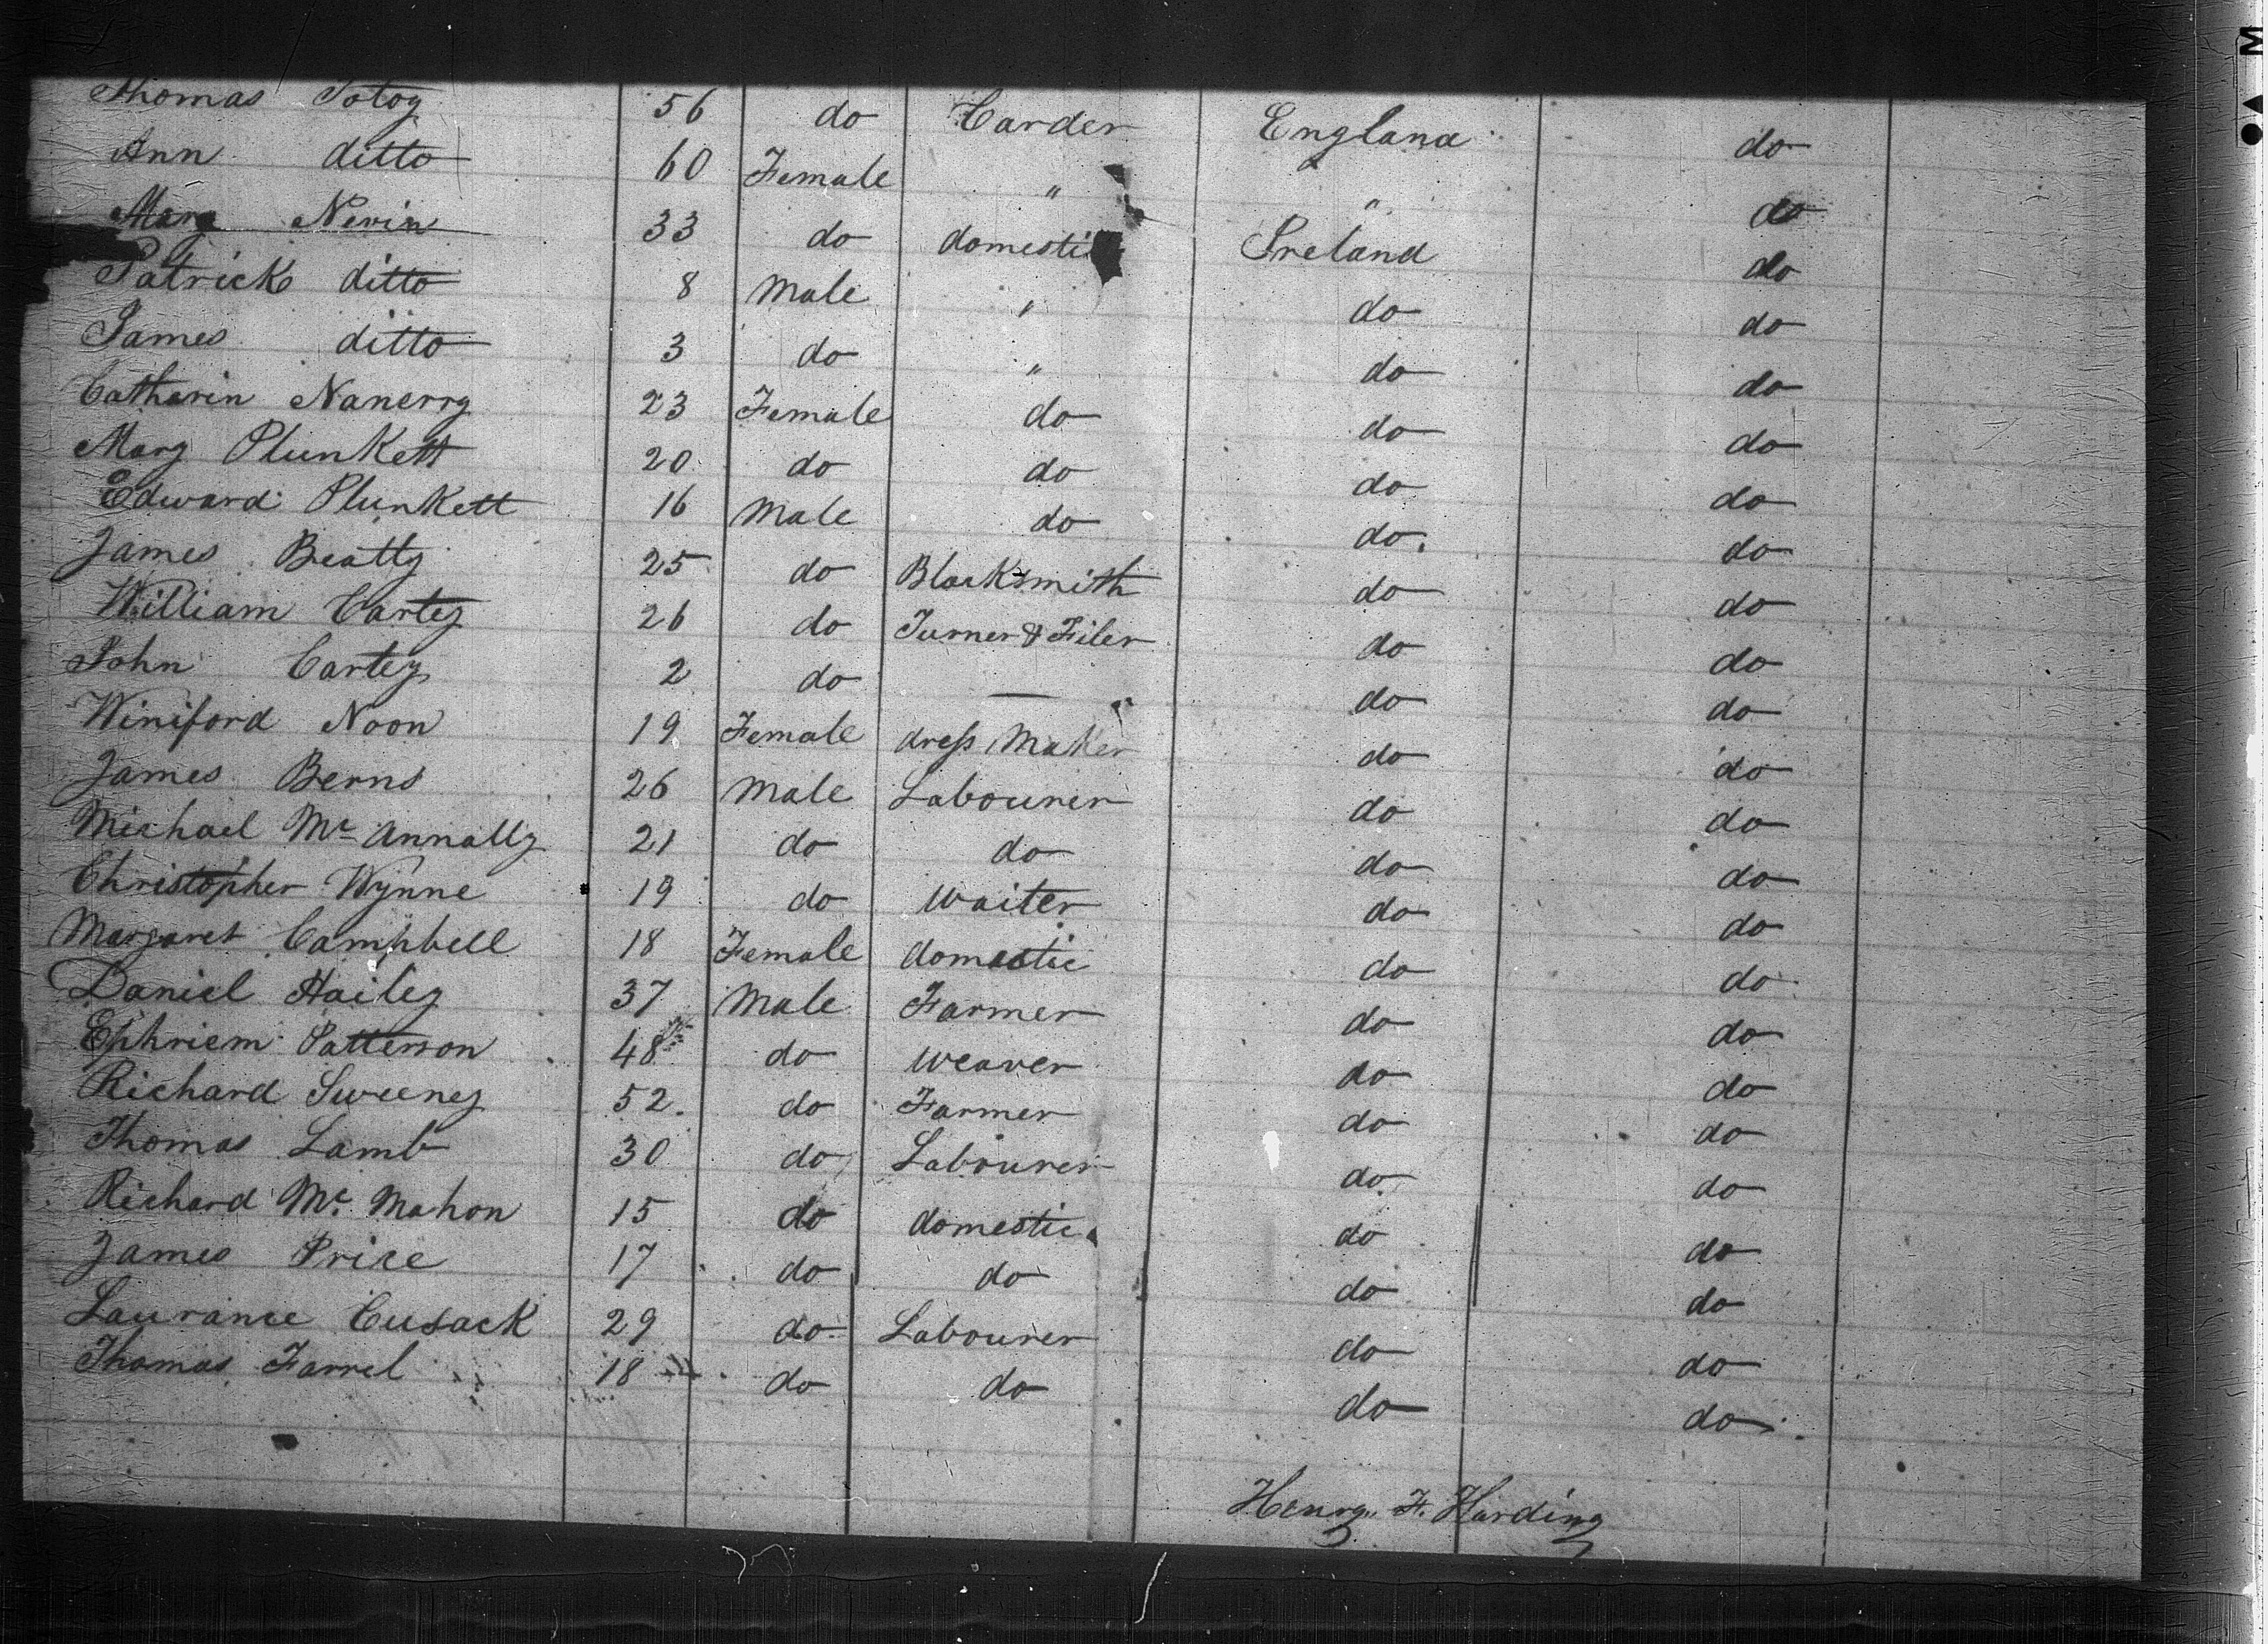 Thomas Totoy 56 do Carder England do
Ann ditto 60 Female " " do
Mary Nevin 33 do domestic Ireland do
Patrick ditto 8 Male " do do
James ditto 3 do " do do
Catherin Nanerry 23 Female do do do
Mary Plunkett 20 do do do do
Edward Plunkett 16 Male do do. do
James Beatty 25 do Blacksmith do do
William Cartey 26 do Turner & Filer do do
John Cartey 2 do — do do
Winiford Noon 19 Female dress Maker do do
James Berns 26 Male Labourer do do
Michael Mc Annally 21 do do do do
Christopher Wynne 19 do waiter do do
Margaret Campbell 18 Female domestic do do
Daniel Hailey 37 Male Farmer do do
Ephriem Patterson 48 do weaver do do
Richard Sweeney 52. do Farmer do do
Thomas Lamb 30 do Labourer do do
Richard Mc Mahon 15 do domestic do do
James Price 17 do do do do
Laurance Cusack 29 do Labourer do do
Thomas Farrel 18 do do do do.
Henry F. Harding